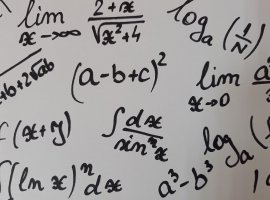 lim x→-∞ (2+x)/√(x²+4) logₐ(1/N)
+b+2√ab (a-b+c)² lim x→0 a
f(x+y) ∫dx/sinⁿx logₐ(
∫(ln x)ⁿdx a³-b³